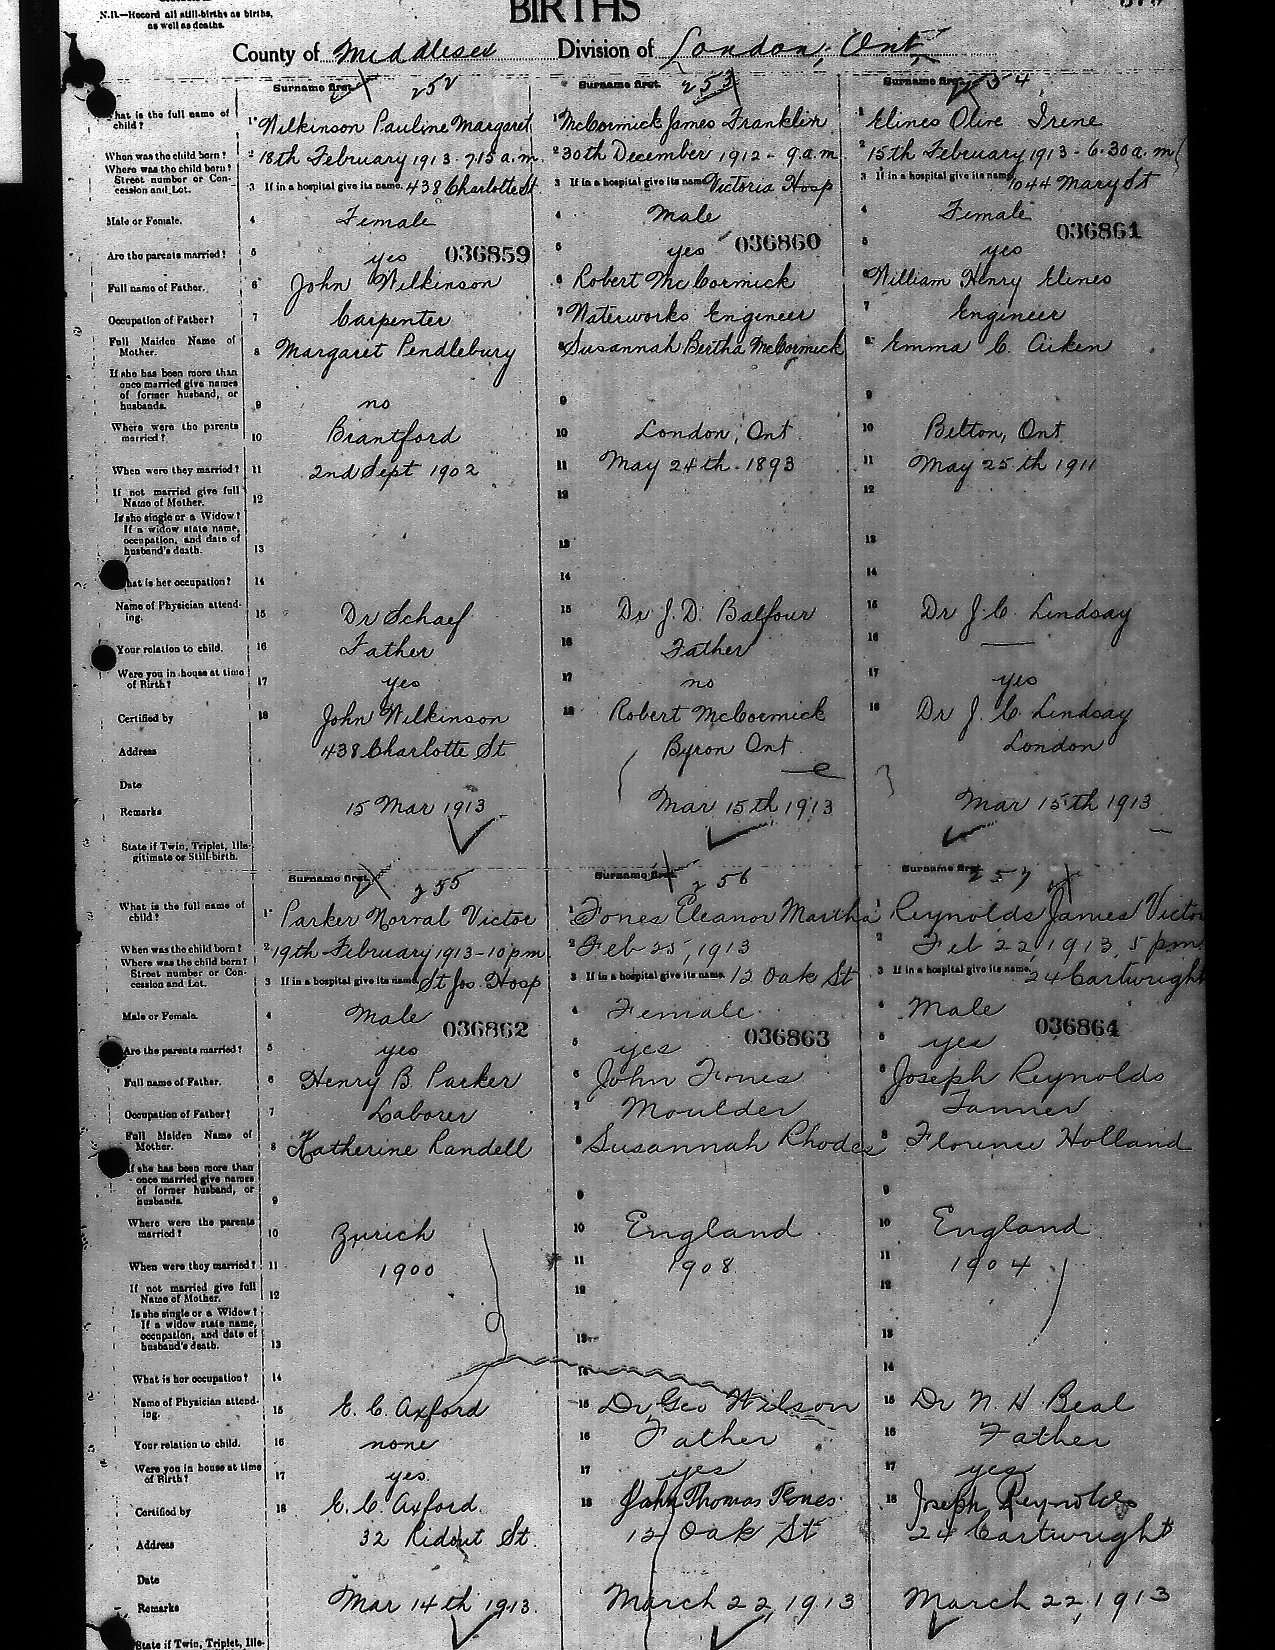 N.B.—Record all still-births as births,
as well as deaths.
BIRTHS
County of Middlesex Division of London, Ont
Surname first. 252
Surname first. 253
Surname first. 254
What is the full name of child? 1 Wilkinson Pauline Margaret 1 McCormick James Franklin 1 Elines Olive Irene
When was the child born? 2 18th February 1913 - 7.15 a.m. 2 30th December 1912 - 9 a.m 2 15th February 1913 - 6.30 a.m
Where was the child born? Street number or Concession and Lot. 3 If in a hospital give its name. 438 Charlotte St. 3 If in a hospital give its name Victoria Hosp 3 If in a hospital give its name 1044 Mary St
Male or Female. 4 Female 4 Male 4 Female
036859 036860 036861
Are the parents married? 5 yes 5 yes 5 yes
Full name of Father. 6 John Wilkinson 6 Robert McCormick 6 William Henry Elines
Occupation of Father? 7 Carpenter 7 Waterworks Engineer 7 Engineer
Full Maiden Name of Mother. 8 Margaret Pendlebury 8 Susannah Bertha McCormick 8 Emma C. Aiken
If she has been more than once married give names of former husband, or husbands. 9 no 9 9
Where were the parents married? 10 Brantford 10 London, Ont 10 Belton, Ont
When were they married? 11 2nd Sept 1902 11 May 24th - 1893 11 May 25th 1911
If not married give full Name of Mother. 12 12 12
Is she single or a Widow? If a widow state name, occupation, and date of husband's death. 13 13 13
What is her occupation? 14 14 14
Name of Physician attending. 15 Dr Schaef 15 Dr J. D. Balfour 15 Dr J. C. Lindsay
Your relation to child. 16 Father 16 Father 16 —
Were you in house at time of Birth? 17 yes 17 no 17 yes
Certified by 18 John Wilkinson 18 Robert McCormick 18 Dr J. C. Lindsay
Address 438 Charlotte St Byron Ont London
Date
Remarks 15 Mar 1913 Mar 15th 1913 Mar 15th 1913
State if Twin, Triplet, Illegitimate or Still-birth.
Surname first. 255
Surname first. 256
Surname first. 257
What is the full name of child? 1 Parker Norval Victor 1 Fones Eleanor Martha 1 Reynolds James Victor
When was the child born? 2 19th February 1913 - 10 pm 2 Feb 25, 1913 2 Feb 22, 1913, 5 pm
Where was the child born? Street number or Concession and Lot. 3 If in a hospital give its name St Jos. Hosp 3 If in a hospital give its name. 12 Oak St 3 If in a hospital give its name. 24 Cartwright
Male or Female. 4 Male 4 Female 4 Male
036862 036863 036864
Are the parents married? 5 yes 5 yes 5 yes
Full name of Father. 6 Henry B. Parker 6 John Fones 6 Joseph Reynolds
Occupation of Father? 7 Laborer 7 Moulder 7 Tanner
Full Maiden Name of Mother. 8 Katherine Randell 8 Susannah Rhodes 8 Florence Holland
If she has been more than once married give names of former husband, or husbands. 9 9 9
Where were the parents married? 10 Zurich 10 England 10 England
When were they married? 11 1900 11 1908 11 1904
If not married give full Name of Mother. 12 12 12
Is she single or a Widow? If a widow state name, occupation, and date of husband's death. 13 13 13
What is her occupation? 14 14 14
Name of Physician attending. 15 E. C. Axford 15 Dr Geo Wilson 15 Dr N. H Beal
Your relation to child. 16 none 16 Father 16 Father
Were you in house at time of Birth? 17 yes. 17 yes 17 yes
Certified by 18 E. C. Axford. 18 John Thomas Fones. 18 Joseph Reynolds
Address 32 Ridout St. 12 Oak St 24 Cartwright
Date
Remarks Mar 14th 1913. March 22, 1913 March 22, 1913
State if Twin, Triplet, Ille-